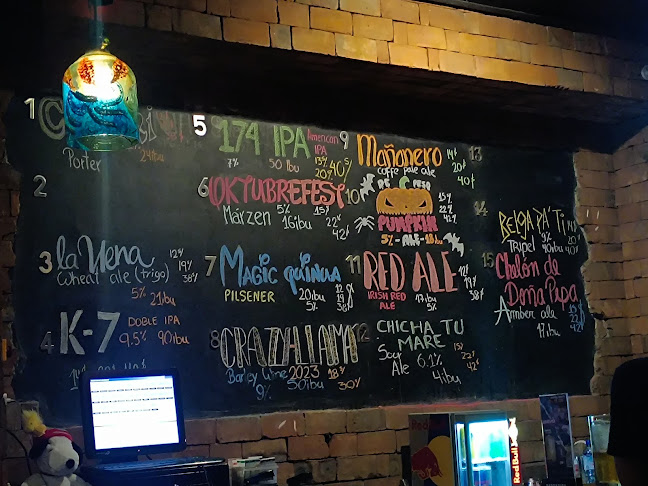 1
Porter 24ibu
2
3 la Nena 12¢
Wheat ale (trigo) 19¢
38¢
5% 21ibu
4 K-7 DOBLE IPA
9,5% 90ibu
5 174 IPA American
IPA
7% 50 ibu 13¢
20¢ 40$
6 OKTUBREFEST
Märzen 5% 15¢
16ibu 22¢
42¢
7 MAGIC quinua
PILSENER 20ibu 12
5% 19
38¢
8 CRAZY LLAMA
Barley Wine 2023 18$
9% 50ibu 30$
9 Mañanero 14¢
caffe pale ale 20¢
5% 40¢
10 PUMPKIN 15¢
22¢
42¢
5% - ALE - 18ibu
11 RED ALE 12¢
IRISH RED 19¢
ALE 17ibu 38¢
5%
12 CHICHA TU
MARE
Sour 15¢
Ale 6.1% 22¢
4ibu 42¢
13
14 BELGA PA' TI
Tripel 9%
20¢
40¢
15 Cholón de
Doña Pepa
Amber ale
17ibu 42¢
Red Bull